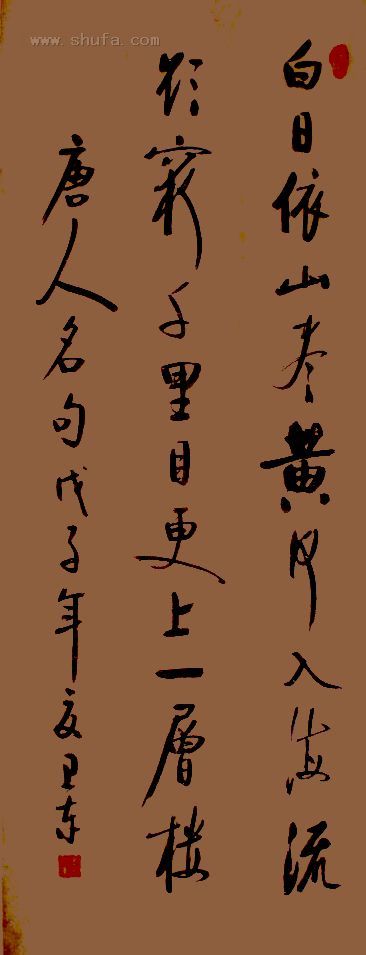 www.shufa.com
白日依山尽黄河入海流
欲穷千里目更上一層楼
唐人名句戊子年夏卫东